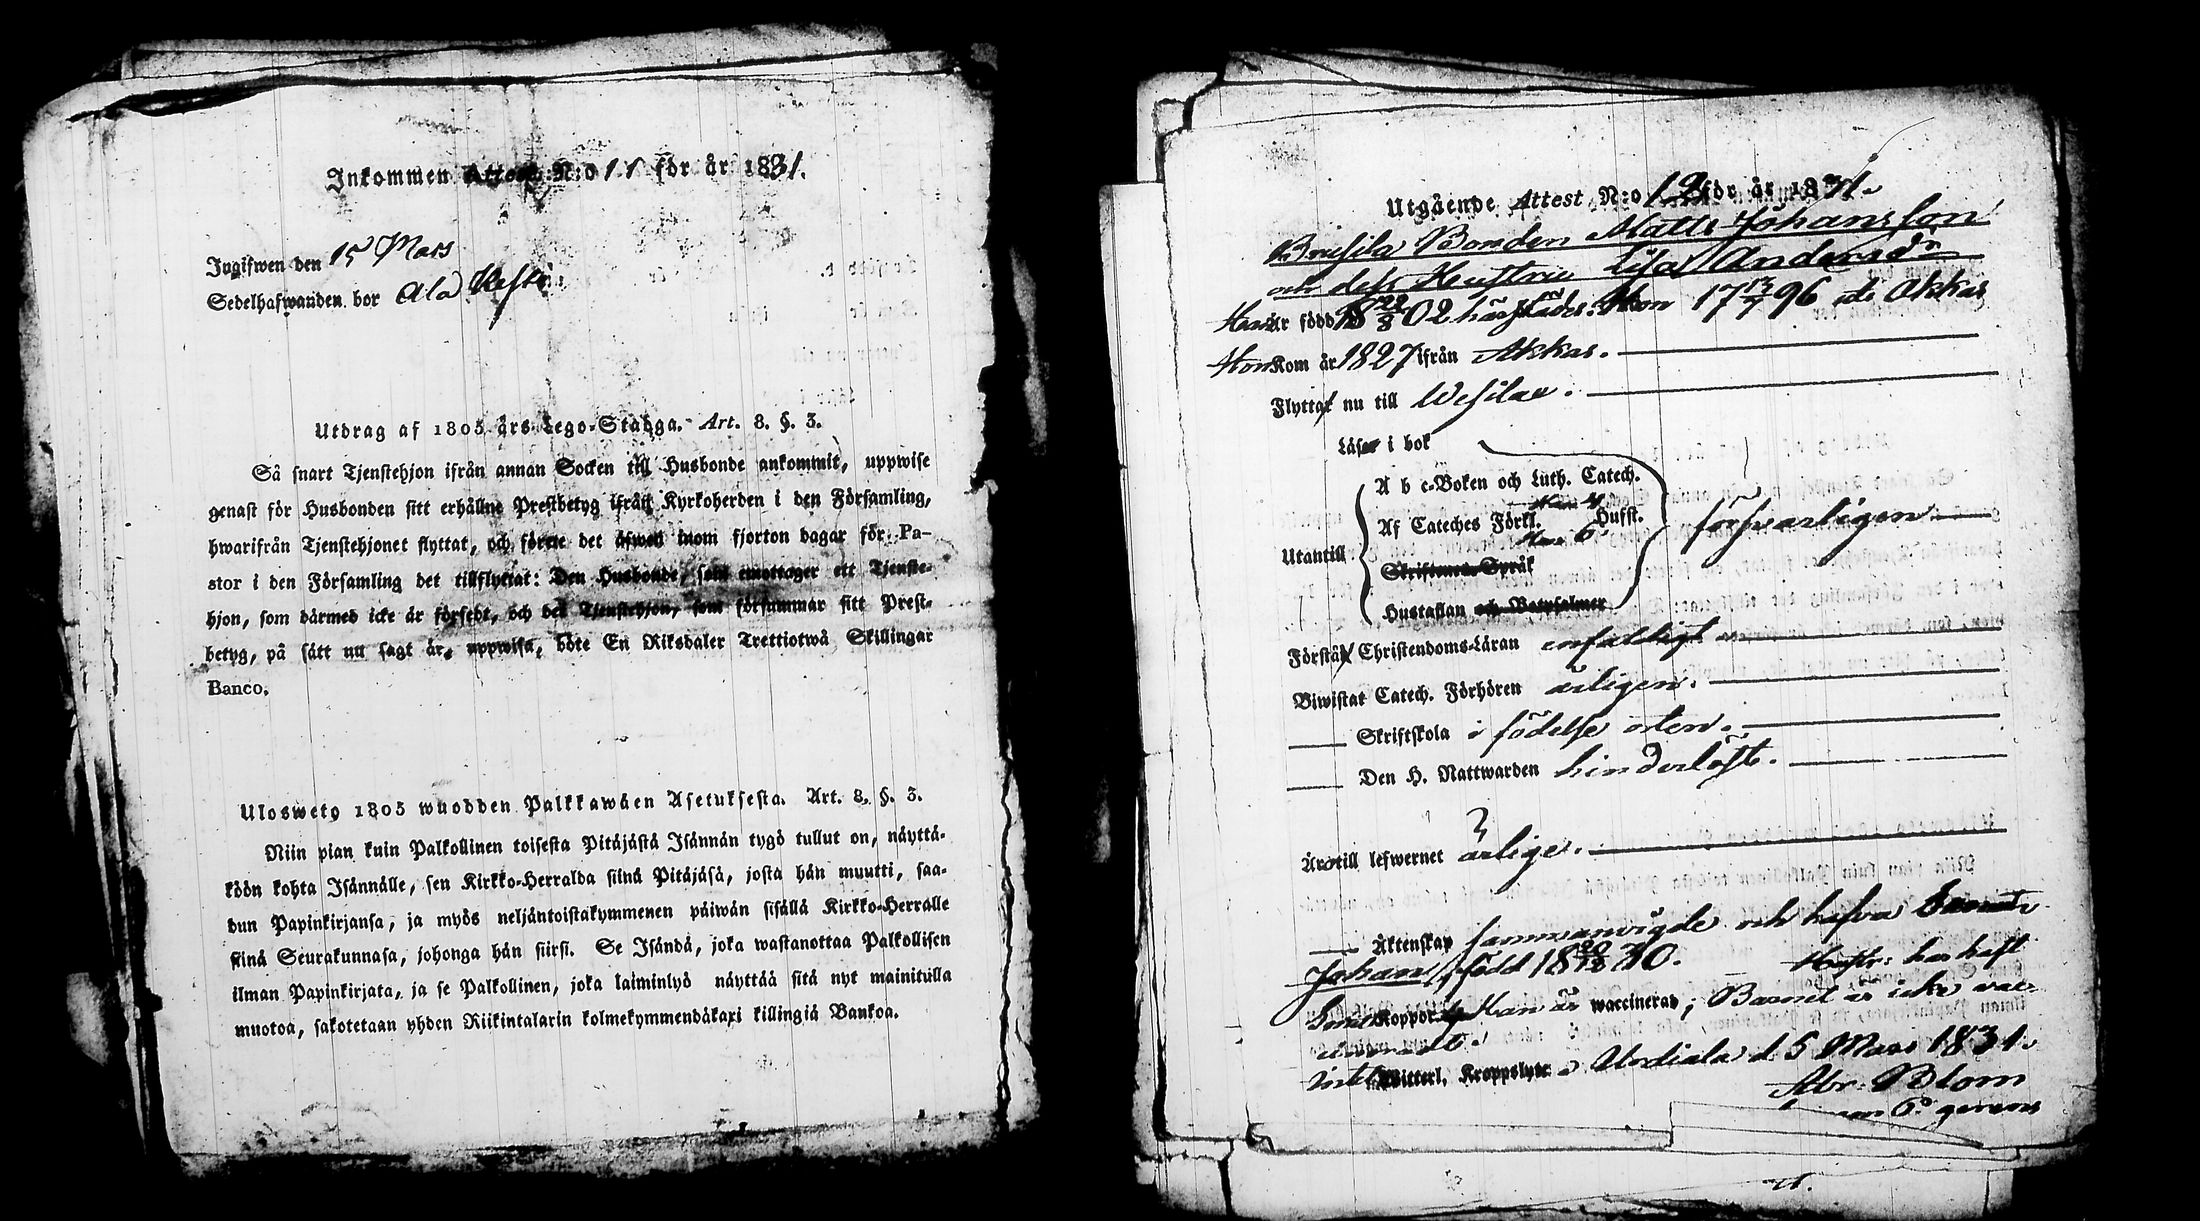 Inkommen Attest N:o 11 för år 1831.
Ingifwen den 15 Mars
Sedelhafwanden bor Ala
Utdrag af 1805 års Lego-Stadga. Art. 8. §. 3.
Så snart Tjenstehjon ifrån annan Socken till Husbonde ankommit, uppwise
genast för Husbonden sitt erhållne Prestbetyg ifrån Kyrkoherden i den Församling,
hwarifrån Tjenstehjonet flyttat, och förete det äfwen inom fjorton dagar för Pa-
stor i den Församling det tillflyttat: Den Husbonde, som emottager ett Tjenste-
hjon, som därmed icke är försedt, och det Tjenstehjon, som försummar sitt Prest-
betyg, på sätt nu sagt är, uppwisa, böte En Riksdaler Trettiotwå Skillingar
Banco.
Uloswetg 1805 wuodden Palkkawäen Asetuksesta. Art. 8. §. 3.
Niin pian kuin Palkollinen toisesta Pitäjästä Isännän tygö tullut on, näyttä-
köön kohta Isännälle, sen Kirkko-Herralda siinä Pitäjäsä, josta hän muutti, saa-
dun Papinkirjansa, ja myös neljäntoistakymmenen päiwän sisällä Kirkko-Herralle
siinä Seurakunnasa, johonga hän siirsi. Se Isändä, joka wastanottaa Palkollisen
ilman Papinkirjata, ja se Palkollinen, joka laiminlyö näyttää sitä nyt mainitulla
muotoa, sakotetaan yhden Riikintalarin kolmekymmendäkaxi killingiä Bankoa.
Utgående Attest N:o 12 för år 1831.
Brusila Bonden Matts Johansson
och dess Hustru Lisa Andersdr
Han är född 18 22/8 02 härstädes. Hon 17 13/7 96 i Akkas
Hon Kom år 1827 ifrån Akkas.
Flytta nu till Wesilax.
Läsa i bok
A b c-Boken och Luth. Catech.
Hon 4
Af Cateches Förkl. Hufst.
Han 6
Utantill
Skriftenes Språk
Hustaflan och Botpsalmer
försvarligen
Förstå Christendoms-Läran enfaldigt
Biwistat Catech. Förhören årligen.
Skriftskola i födelse orten.
Den H. Nattwarden hinderlöst.
Äro till lefwernet ärlige.
Äktenskap sammanvigde och hafva Barnet
Johan, född 18 20/12 30. Hustr: har haft
Koppor Han är waccinerad; Barnet är icke vac-
cineradt.
intet Witterl. Kroppslyte Urdiala d 5 Mars 1831.
Abr: Blom